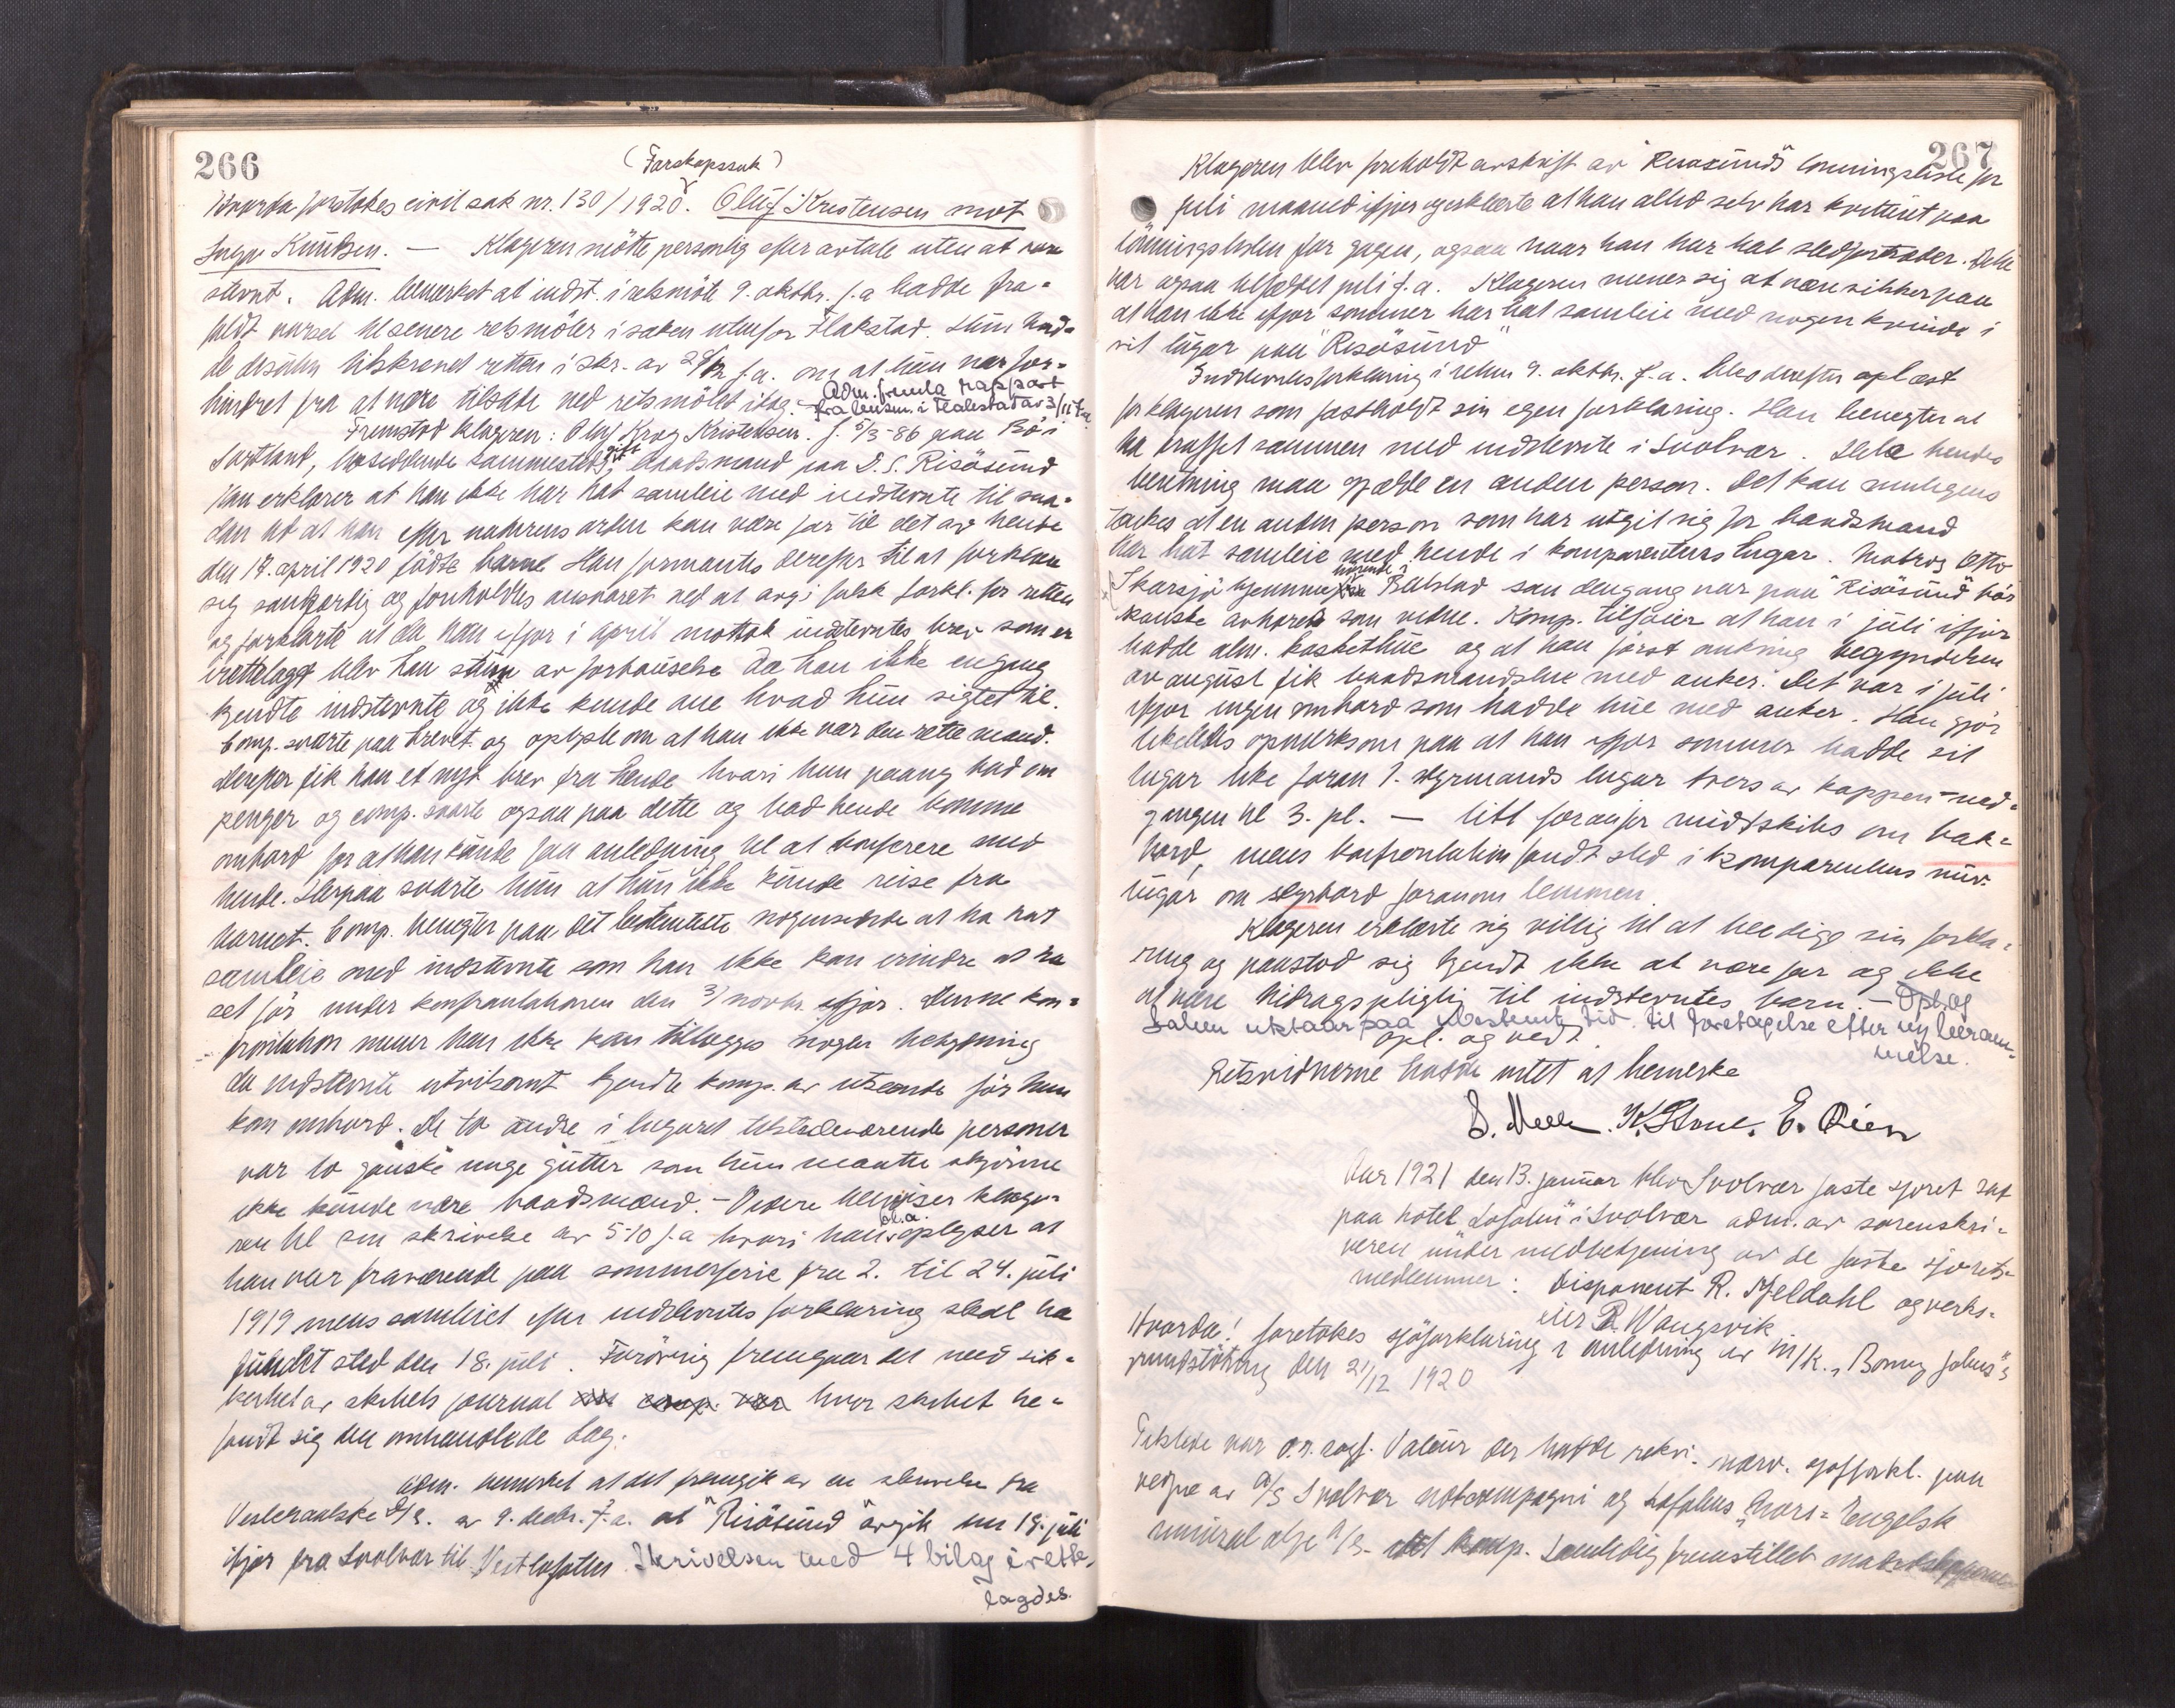 266
(Farskapssak)
Hvorda foretokes civil sak nr. 130/1920. Oluf Kristensen mot
Inga Knudsen. — Klageren mötte personlig efter avtale uten at være
stevnt. Adm. bemerket at indst. i retsmöte 9. oktbr. f.a hadde fra-
faldt varsel til senere retsmöter i saken utenfor Flakstad. Hun had-
de desuten tilskrevet retten i skr. av f.a. om at hun var for-
hindret fra at være tilstede ved retsmötet idag. — Adm. fremla rapport
fra lensm. i Flakstad av 3/11 f.a.
Fremstod klageren: Oluf Krog Kristensen. f. 5/3-86 paa Bö i
Sortland, bosiddende sammesteds, gift baadsmand paa D.S. Risösund
Han erklærer at han ikke har hat samleie med indstevnte til saa-
dan tid at han efter naturens orden kan være far til det av hende
den 18. april 1920 födte barn. Han formantes derefter til at forklare
sig sandfærdig og foreholdtes ansvaret ved at avgi falsk forkl. for retten
og forklarte at da han ifjor i april mottok indstevntes brev som er
irettelagt blev han stum av forbauselse da han ikke engang
kjendte indstevnte og ikke kunde ane hvad hun sigtet til.
Comp. svarte paa brevet og oplyste om at han ikke var den rette mand.
Derefter fik han et nyt brev fra hende hvori hun paany bad om
penger og comp. svarte ogsaa paa dette og bad hende komme
ombord for at han kunde faa anledning til at konferere med
hende. Herpaa svarte hun at hun ikke kunde reise fra
barnet. Comp. benegter paa det bestemteste nogensinde at ha hat
samleie med indstevnte som han ikke kan erindre at ha
set för under konfrontationen den 3/ novbr. ifjor. Denne kon-
frontation mener han ikke kan tillægges nogen betydning
da indstevnte utvilsomt kjendte komp. av utseende för hun
kom ombord. De to andre i lugaret tilstedeværende personer
var to ganske unge gutter som hun maatte skjönne
ikke kunde være baadsmænd. — Videre henviser klage-
ren til sin skrivelse av 5/10 f.a hvori han bl.a. oplyser at
han var fraværende paa sommerferie fra 2. til 24. juli
1919 mens samleiet efter indstevntes forklaring skal ha
fundet sted den 18. juli. Forövrig fremgaar det med sik-
kerhet av skibets journal hvor skibet be-
fandt sig den omhandlede dag.
Adm. bemerket at det fremgik av en skrivelse fra
Vesteraalske D/S. av 9. decbr. f.a. at "Risösund" avgik den 18. juli
ifjor fra Svolvær til Vestlofoten. Skrivelsen med 4 bilag irette-
lagdes.
267
Klageren blev foreholdt avskrift av "Risösund's lönningsliste for
juli maaned ifjor og erklærte at han altid selv har kvittert paa
lönningslisten for gagen, ogsaa naar han har hat stedfortræder. Dette
var ogsaa tilfældet juli f.a. Klageren mener sig at være sikker paa
at han ikke ifjor sommer har hat samleie med nogen kvinde i
sit lugar paa "Risösund"
Indstevntes forklaring i retten 9. oktbr. f.a. blev derefter oplæst
for klageren som fastholdt sin egen forklaring. Han benegter at
ha truffet sammen med indstevnte i Svolvær. Hele hendes
beretning maa gjælde en anden person. Det kan muligens
tænkes at en anden person som har utgit sig for baadsmand
har hat samleie med hende i komparentens lugar. Matros Otto
Skarsjö hjemmehörende i Balstad som dengang var paa "Risösund" bör
kanske avhöres som vidne. Komp. tilföier at han i juli ifjor
hadde alm. kaskethue og at han först omkring begyndelsen
av august fik baadsmandshue med anker. Det var i juli
ifjor ingen ombord som hadde hue med anker. Han gjör
likeledes opmerksom paa at han ifjor sommer hadde sit
lugar like foran 1. styrmands lugar tvers av kappen-ned-
gangen til 3. pl. — litt foranfor midtskibs om bak-
bord, mens konfrontation fandt sted i komparentens nuv.
lugar om styrbord foranom lemmen.
Klageren erklærte sig villig til at beedige sin forkla-
ring og paastod sig kjendt ikke at være far og ikke
at være bidragspligtig til indstevntes barn. — Opl. og
Saken utstaar paa ubestemt tid til foretagelse efter ny beram-
melse.
Opl. og vedt.
Retsvidnerne hadde intet at bemerke
E. Öien
Aar 1921 den 13. januar blev Svolvær faste sjöret sat
paa hotel "Lofoten" i Svolvær adm. av sorenskri-
veren under medbetjening av de faste sjörets-
medlemmer: Disponent R. Kjeldahl og verks-
eier R. Wangsvik
Hvorda! foretokes sjöforklaring i anledning av M/K. "Bonny Johns"s
grundstötning den 21/12 1920
Tilstede var o.r.sagf. Valeur der hadde rekv. nærv. sjöforkl. paa
vegne av A/S Svolvær notcompagni og Lofotens "Nors-Engelsk
mineral olje A/S. Samtidig fremstillet